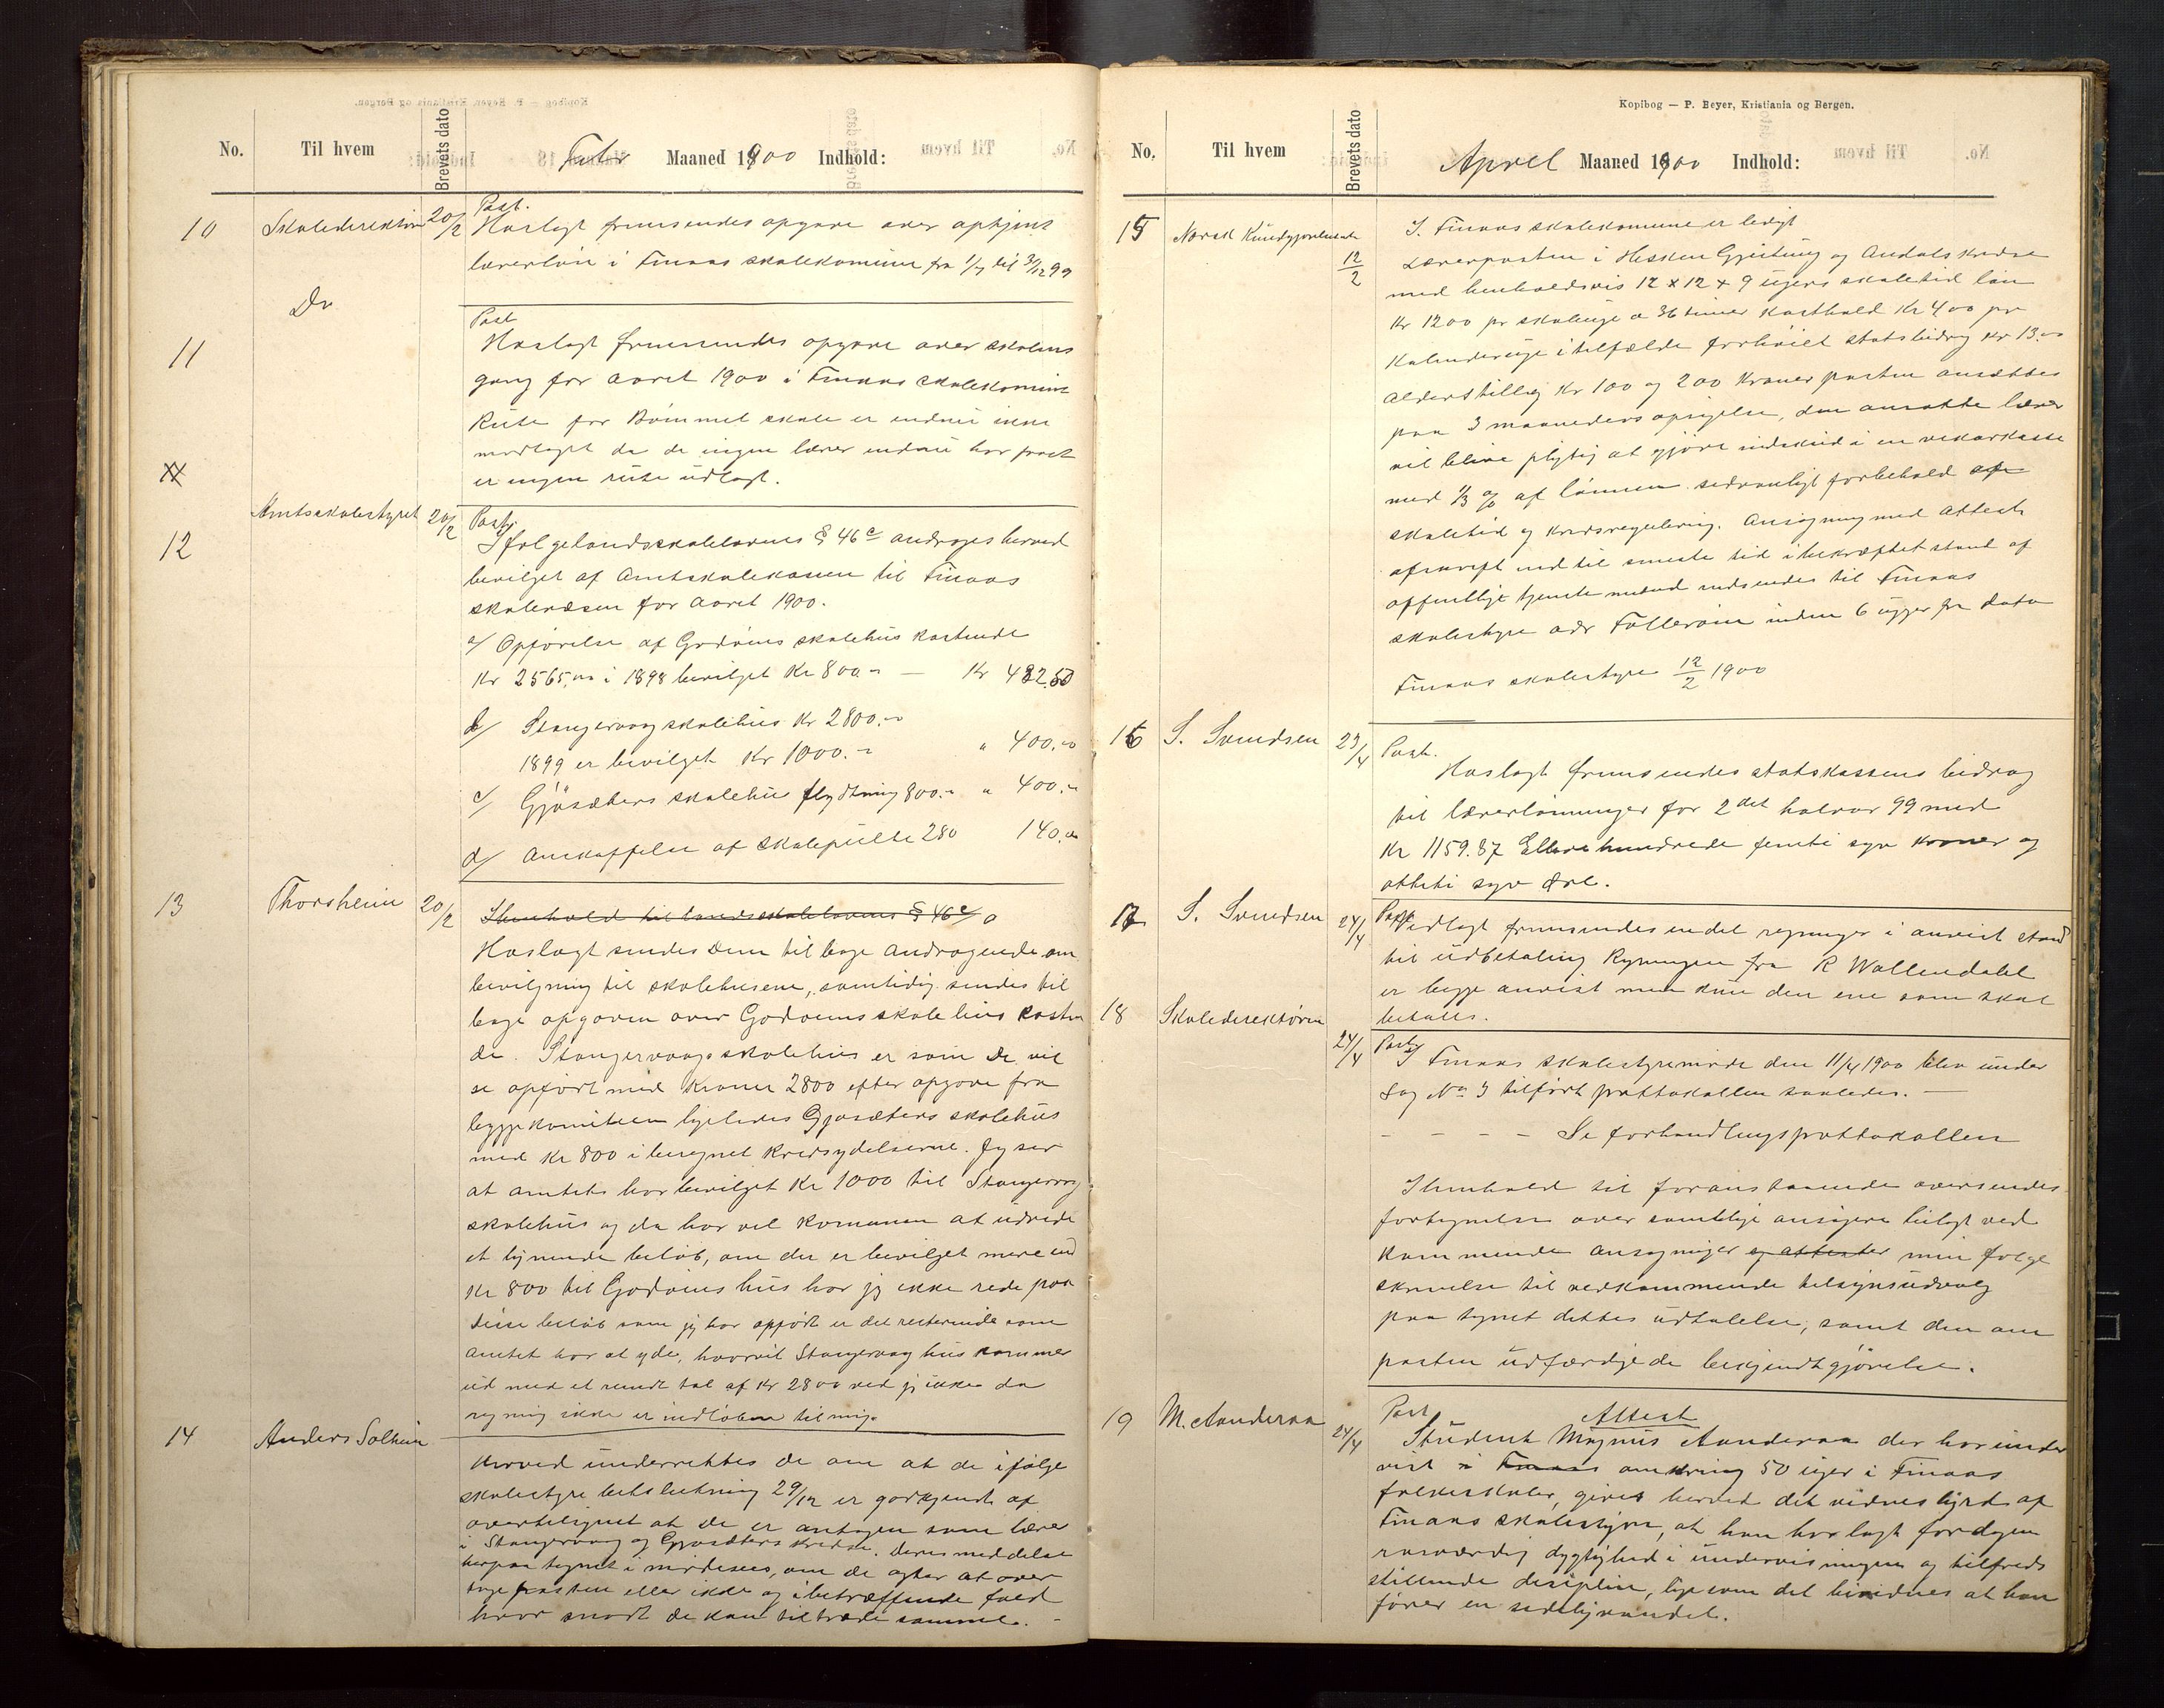 No. Til hvem Brevets dato Febr Maaned 1900 Indhold:
10 Skoledirektøren 20/2 Post.
Hoslagt fremsendes opgave over optjent
lærerløn i Finaas skolekomune fra 1/7 til 31/12 99
11 Do Post
Hoslagt fremsendes opgave over skolens
gang for aaret 1900 i Finaas skolekomune
Rute for Bømmel skole er endnu ikke
modtaget da de ingen lærer endnu har faaet
er ingen rute udlagt.
12 Amtsskolestyret 20/2 Post
Ifølge landsskolelovens § 46 c andrages herved
bevilget af Amtskolekassen til Finaas
skolevæsen for aaret 1900.
a/ Opførelse af Godøens skolehus kostende
Kr 2565,00 i 1898 bevilget Kr 800.- — Kr 482.50
b/ Stangervaag skolehus Kr 2800.-
1899 er bevilget Kr 1000.- " 400.-
c/ Gjøsæters skolehus flydtning 800.- " 400.-
d/ Anskaffelse af skolepulte 280 140.00
13 Thorsheim 20/2 I henhold til landsskolelovens § 46 c/
Hoslagt sendes Dem tilbage Andragende om
bevilgning til skolehusene, samtidig sendes til
bage opgaven over Godøens skolehus kosten
de. Stangervaags skolehus er som De vil
se opført med Kroner 2800 efter opgave fra
byggekomiteen ligeledes Gjøsæters skolehus
med Kr 800 iberegnet Kredsydelserne. Jeg ser
at amtet har bevilget Kr 1000 til Stangervaag
skolehus og da har vel Komunen at udrede
et lignende beløb, om der er bevilget mere end
Kr 800 til Godøens hus har jeg ikke rede paa
disse beløb som jeg har opført er det resterende som
amtet har at yde, hvorvidt Stangervaag hus kommer
ud med et rundt tal af Kr 2800 ved jeg ikke da
regning ikke er indløben til mig.
14 Anders Solheim
Herved underrettes De om at de ifølge
skolestyrebeslutning 29/12 er godkjendt af
overtilsynet at De er antagen som lærer
i Stangervaag og Gjøsæters kredse. Deres meddelse
herpaa tegnet i mødesees, om De agter at over
tage posten eller ikke og i betræffende fald
hvor snart De kan tiltræde samme. -
Kopibog — P. Beyer, Kristiania og Bergen.
No. Til hvem Brevets dato April Maaned 1900 Indhold:
15 Norsk Kundgjørelsestid 12/2 I. Finaas skolekomune er ledigt
Lærerposten i Hesken Gjeitung og Andals kredse
med henholdsvis 12 x 12 + 9 ugers skoletid løn
Kr 1200 pr skoleuge a 36 timer Kosthold Kr 4,00 pr
Kalenderuge i tilfælde forhøiet statsbidrag Kr 13.00
Alderstillæg Kr 100 og 200 Kroner posten ansættes
paa 3 maaneders opsigelse, den ansatte lærer
vil blive pligtig at gjøre indskud i en vikarkasse
med 1/3 % af lønnen sedvanligt forbehold af
skoletid og kredsregulering. Ansøgning med Attest
afskrift indtil seneste tid i bekræftet stand af
offentlige tjenestemænd indsendes til Finaas
skolestyre adr Follerøen inden 6 uger fra dato
Finaas skolestyre 12/2 1900
16 S. Svendsen 23/4 Post.
Hoslagt fremsendes statskassens bidrag
til lærerlønninger for 2det halvaar 99 med
Kr 1159.87 Ellevehundrede femti syv kroner og
otteti syv Øre.
17 S. Svendsen 24/4 Post
Vedlagt fremsendes endel regninger i anvist stand
til udbetaling Regningen fra R Wallendahl
er begge anvist men kun den ene som skal
betales.
18 Skoledirektøren 24/4 Post
I Finaas skolestyremøde den 11/4 1900 blev under
Sag No 3 tilført prottokollen saaledes. —
- - - - Se forhandlingsprottokollen
I henhold til foranstaaende oversendes
fortegnelse over samtlige ansøgere tiligt ved
kommende Ansøgninger og attester min følge
skrivelse til vedkommende tilsynsudvalg
paa tegnet dettes udtalelse, samt den om
posten udfærdigede bekjendtgjørelse.
19 M. Aanderaa 24/4 Post Attest
Student Magnus Aanderaa der har under
vist i Finaas omkring 50 uger i Finaas
folkeskoler, gives herved det vidnesbyrd af
Finaas skolestyre, at han har lagt fordagen
rosværdig dygtighed i undervisningen og tilfreds
stillende disiplin, lige som det bevidnes at han
fører en sedelig vandel.